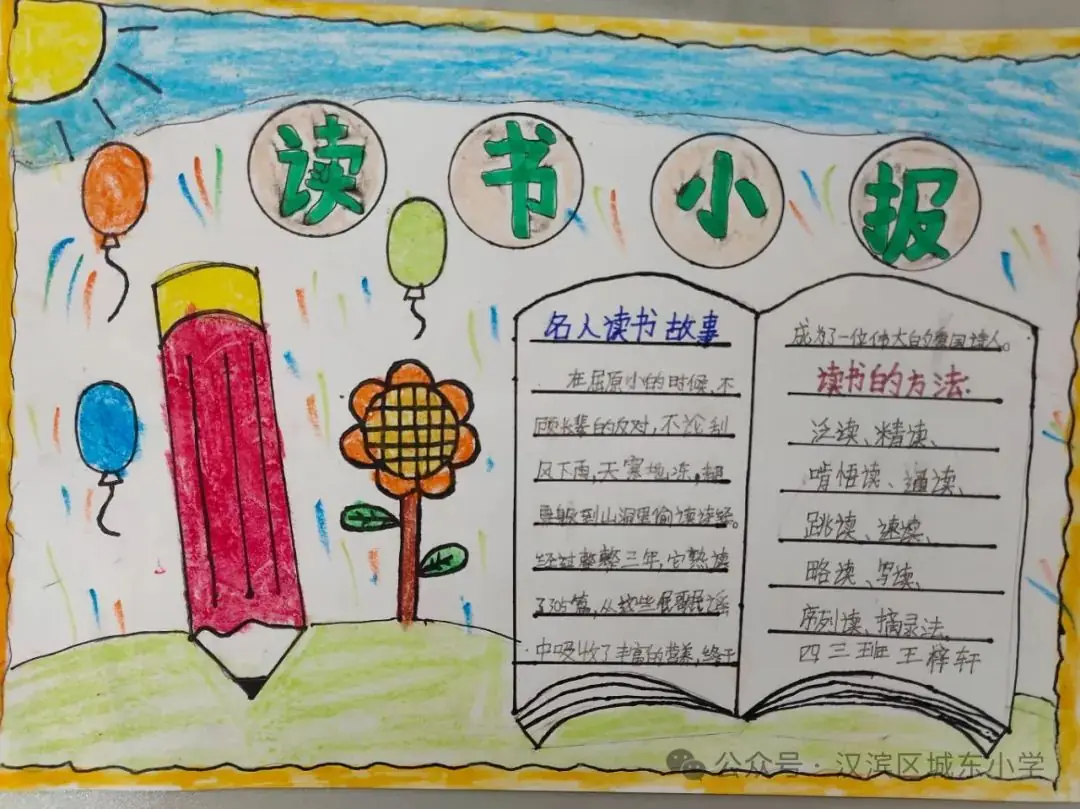 读书小报
名人读书故事
在屈原小的时候,不
顾长辈的反对,不论刮
风下雨,天寒地冻,都
要躲到山洞里偷读诗经。
经过整整三年,它熟读
了305篇,从这些民歌民谣
中吸收了丰富的营养,终于
成为了一位伟大的爱国诗人。
读书的方法:
泛读、精读、
啃悟读、通读、
跳读、速读、
略读、写读、
序列读、摘录法.
四三班王梓轩
公众号·汉滨区城东小学